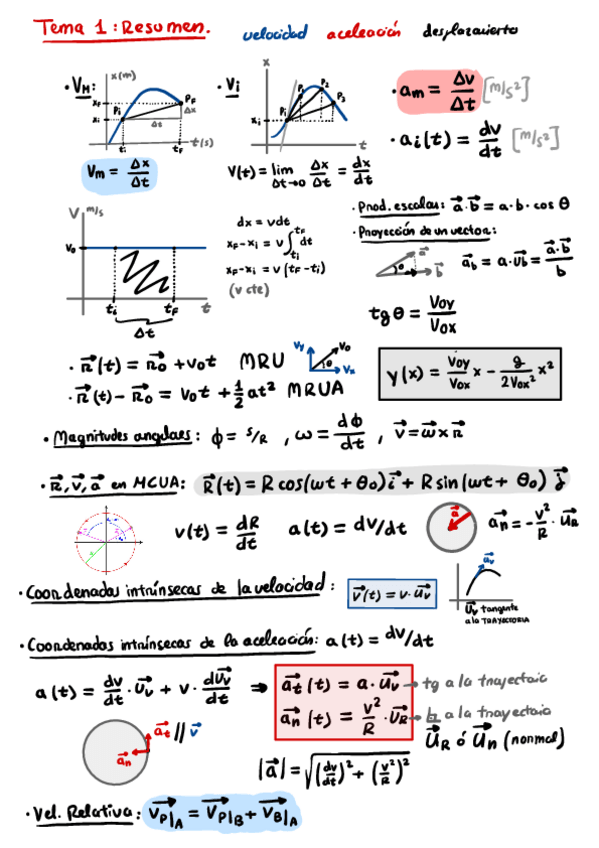 Tema 1: Resumen. velocidad aceleración desplazamiento
· V_M: x(m) x_F x_i P_i P_F Δx Δt t_i t_F t(s)
V_m = Δx/Δt
· V_i x x_i P_i P_1 P_2 P_3 t
V(t) = lim Δt→0 Δx/Δt = dx/dt
· a_m = Δv/Δt [m/s²]
· a_i(t) = dv/dt [m/s²]
V m/s V_0 t_i t_F t
Δt
dx = vdt
x_F - x_i = v ∫_{t_i}^{t_F} dt
x_F - x_i = v (t_F - t_i)
(v cte)
· Prod. escalar: a⃗·b⃗ = a·b·cos θ
· Proyección de un vector:
a⃗ θ b⃗ a⃗_b = a·u⃗_b = a⃗·b⃗/b
tg θ = V_oy/V_ox
· r⃗(t) = r⃗_0 + v_0t MRU
V_y V_0 θ V_x
· r⃗(t) - r⃗_0 = V_0t + 1/2 at² MRUA
y(x) = V_oy/V_ox x - g/2V_ox² x²
· Magnitudes angulares: ϕ = s/R , ω = dϕ/dt , v⃗ = ω⃗ x r⃗
· r⃗, v⃗, a⃗ en MCUA: R⃗(t) = R cos(ωt + θ_0) i⃗ + R sin(ωt + θ_0) j⃗
v(t) = dR/dt a(t) = dv/dt a⃗ a⃗_n = -v²/R · u⃗_R
· Coordenadas intrínsecas de la velocidad: v⃗(t) = v·u⃗_v
u⃗_v
u⃗_v tangente
a la TRAYECTORIA
· Coordenadas intrínsecas de la aceleración: a(t) = dv/dt
a(t) = dv/dt · u⃗_v + v · du⃗_v/dt ⇒ a⃗_t(t) = a·u⃗_v → tg a la trayectoria
a⃗_n(t) = v²/R · u⃗_R → h a la trayectoria
u⃗_R ó u⃗_n (normal)
a⃗_t // v⃗
a⃗_n
|a⃗| = √((dv/dt)² + (v²/R)²)
· Vel. Relativa: v⃗_P|A = v⃗_P|B + v⃗_B|A